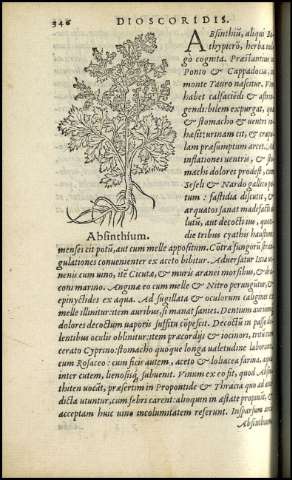 346 DIOSCORIDIS.
ABsinthiũ, aliqui Ba
thypicrõ, herba uul
gò cognita. Præstantius in
Ponto & Cappadocia, in
monte Tauro nascitur. Vim
habet calfaciēdi & astrin
gendi: bilem expurgat, quæ
& stomacho & uentri in
hæsit: urinam ciet, & crapu
lam præsumptum arcet. Ad
inflationes uentris, & sto
machi dolores prodest, cum
Seseli & Nardo gallica po
tum: fastidia discutit, &
arquatos sanat madefacti di
lutũ, aut decoctiũ, quoti
die tribus cyathis haustum
Absinthium.
menses ciet potũ, aut cum melle appositum. Cõtra fungorũ stran
gulationes conuenienter ex aceto bibitur. Aduersatur Ixiæ ue
nenis cum uino, itē Cicutæ, & muris aranei morsibus, & dra
coni marino. Angina eo cum melle & Nitro perungitur, &
epinyctides ex aqua. Ad sugillata & oculorum caligines ex
melle illinitur: item auribus, si manat sanies. Dentium aurium
dolores decoctum uaporis suffitu cõpescit. Decoctũ in passo do
lentibus oculis oblinitur: item præcordijs & iocinori, trito cum
cerato Cyprino: stomacho quoque longa ualetudine laboranti
cum Rosaceo: cum ficis autem, aceto & loliacea farina, aquæ
inter cutem, lienosisq; subuenit. Vinum ex eo fit, quod Absin
thiten uocāt, præsertim in Propontide & Thracia quo ad ante
dicta utuntur, cum febris carent: alioquin in æstate propināt, &
acceptam huic uino incolumitatem referunt. Inspersum arcis
Absinthium